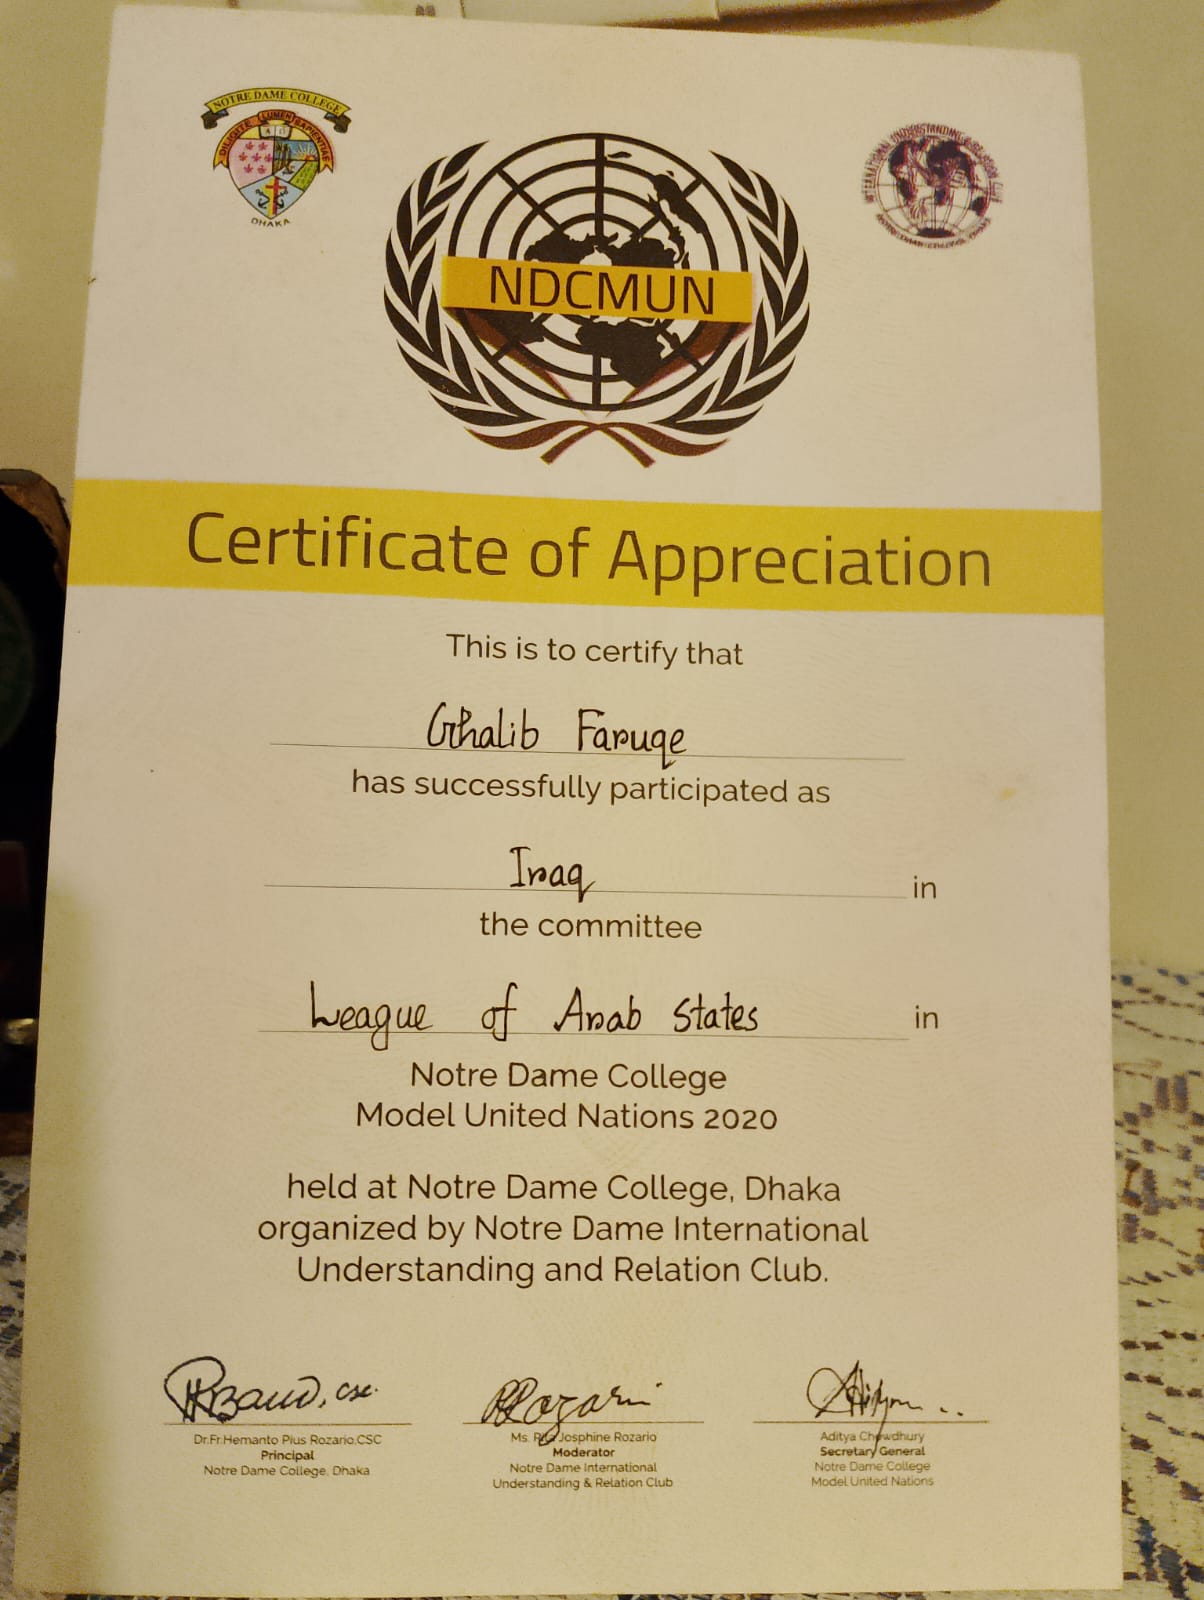 NOTRE DAME COLLEGE
DILIGITE LUMEN SAPIENTIAE
DHAKA
INTERNATIONAL UNDERSTANDING & RELATION CLUB
NDCMUN
Certificate of Appreciation
This is to certify that
Ghalib Faruqe
has successfully participated as
Iraq in
the committee
League of Arab States in
Notre Dame College
Model United Nations 2020
held at Notre Dame College, Dhaka
organized by Notre Dame International
Understanding and Relation Club.
Dr.Fr.Hemanto Pius Rozario,CSC
Principal
Notre Dame College, Dhaka
Ms. Rita Josphine Rozario
Moderator
Notre Dame International
Understanding & Relation Club
Aditya Chowdhury
Secretary General
Notre Dame College
Model United Nations